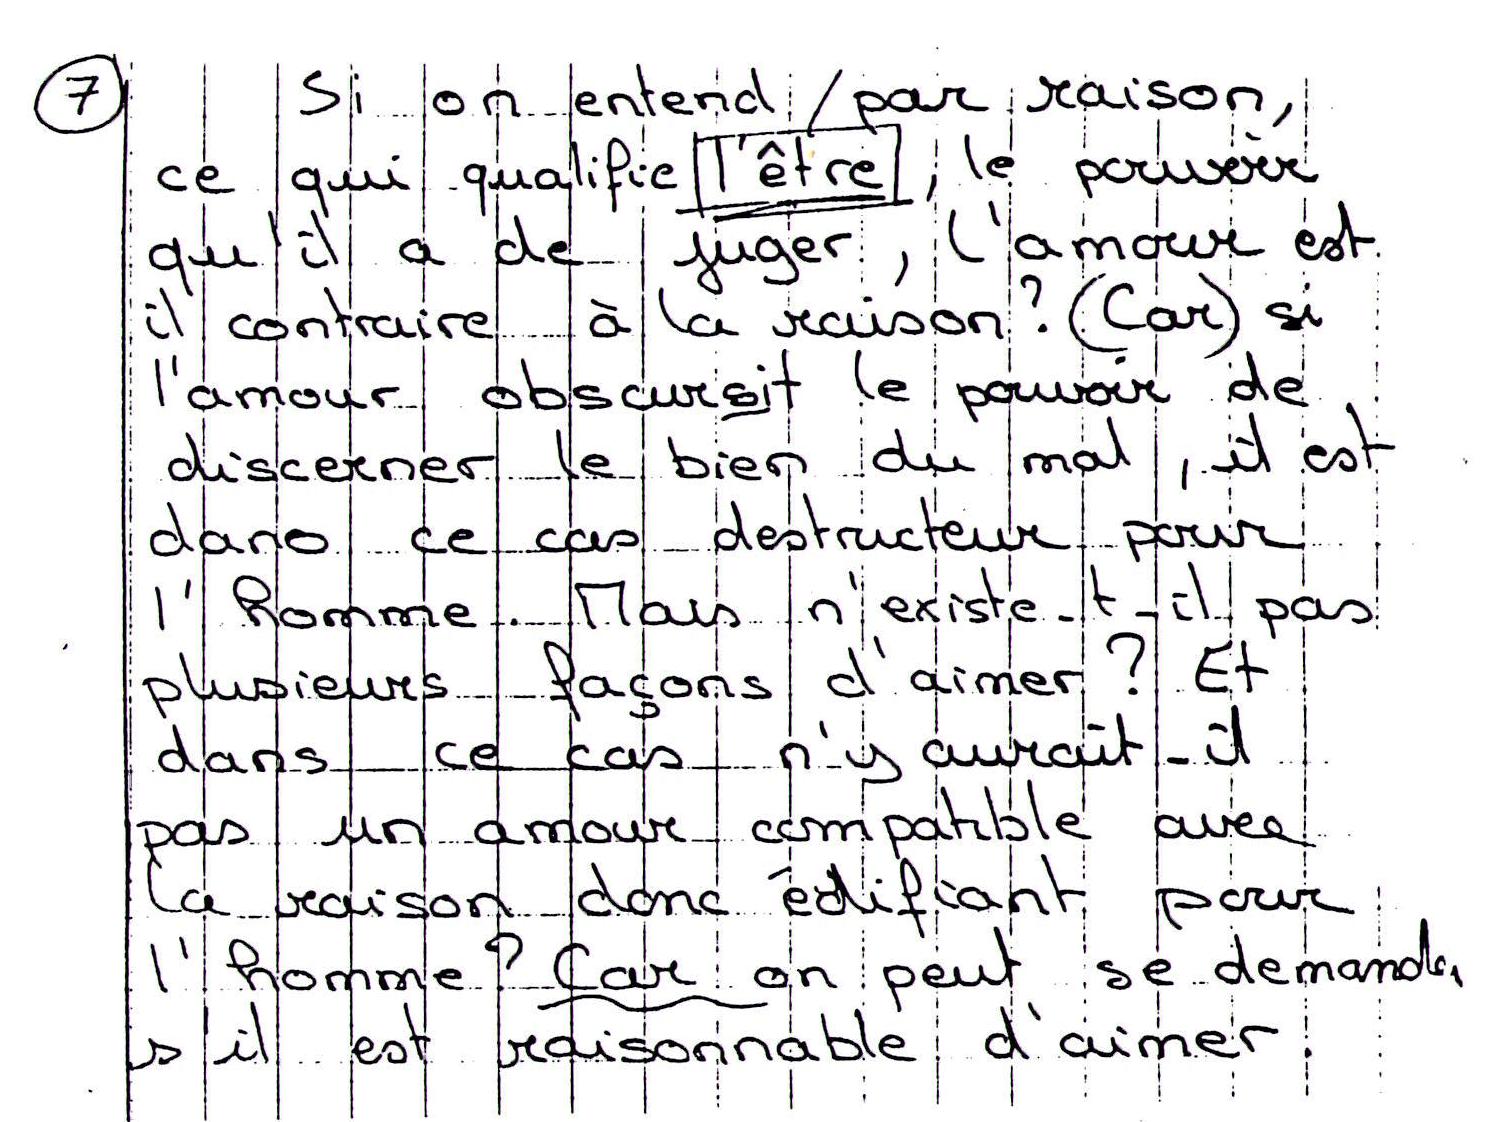 7 Si on entend / par raison,
ce qui qualifie l'être, le pouvoir
qu'il a de juger, l'amour est
il contraire à la raison? (Car) si
l'amour obscursit le pouvoir de
discerner le bien du mal, il est
dans ce cas destructeur pour
l'homme. Mais n'existe-t-il pas
plusieurs façons d'aimer? Et
dans ce cas n'y aurait-il
pas un amour compatible avec
la raison donc édifiant pour
l'homme? Car on peut se demander
s'il est raisonnable d'aimer.